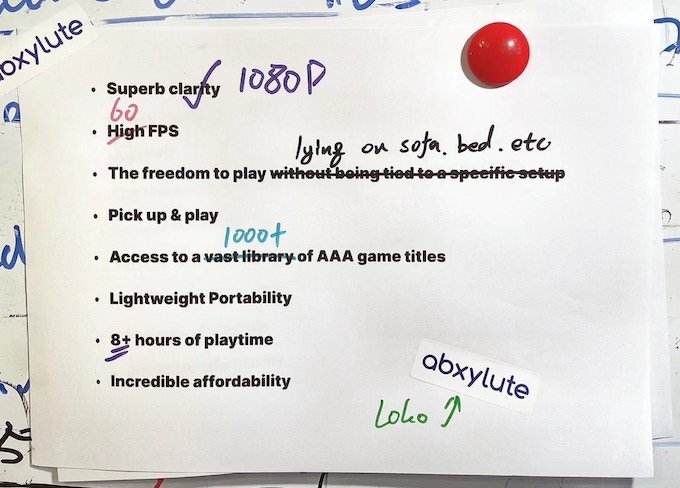 abxylute
• Superb clarity 1080P
60
• High FPS
lying on sofa. bed. etc
• The freedom to play without being tied to a specific setup
• Pick up & play
1000+
• Access to a vast library of AAA game titles
• Lightweight Portability
• 8+ hours of playtime
• Incredible affordability
abxylute
Loko